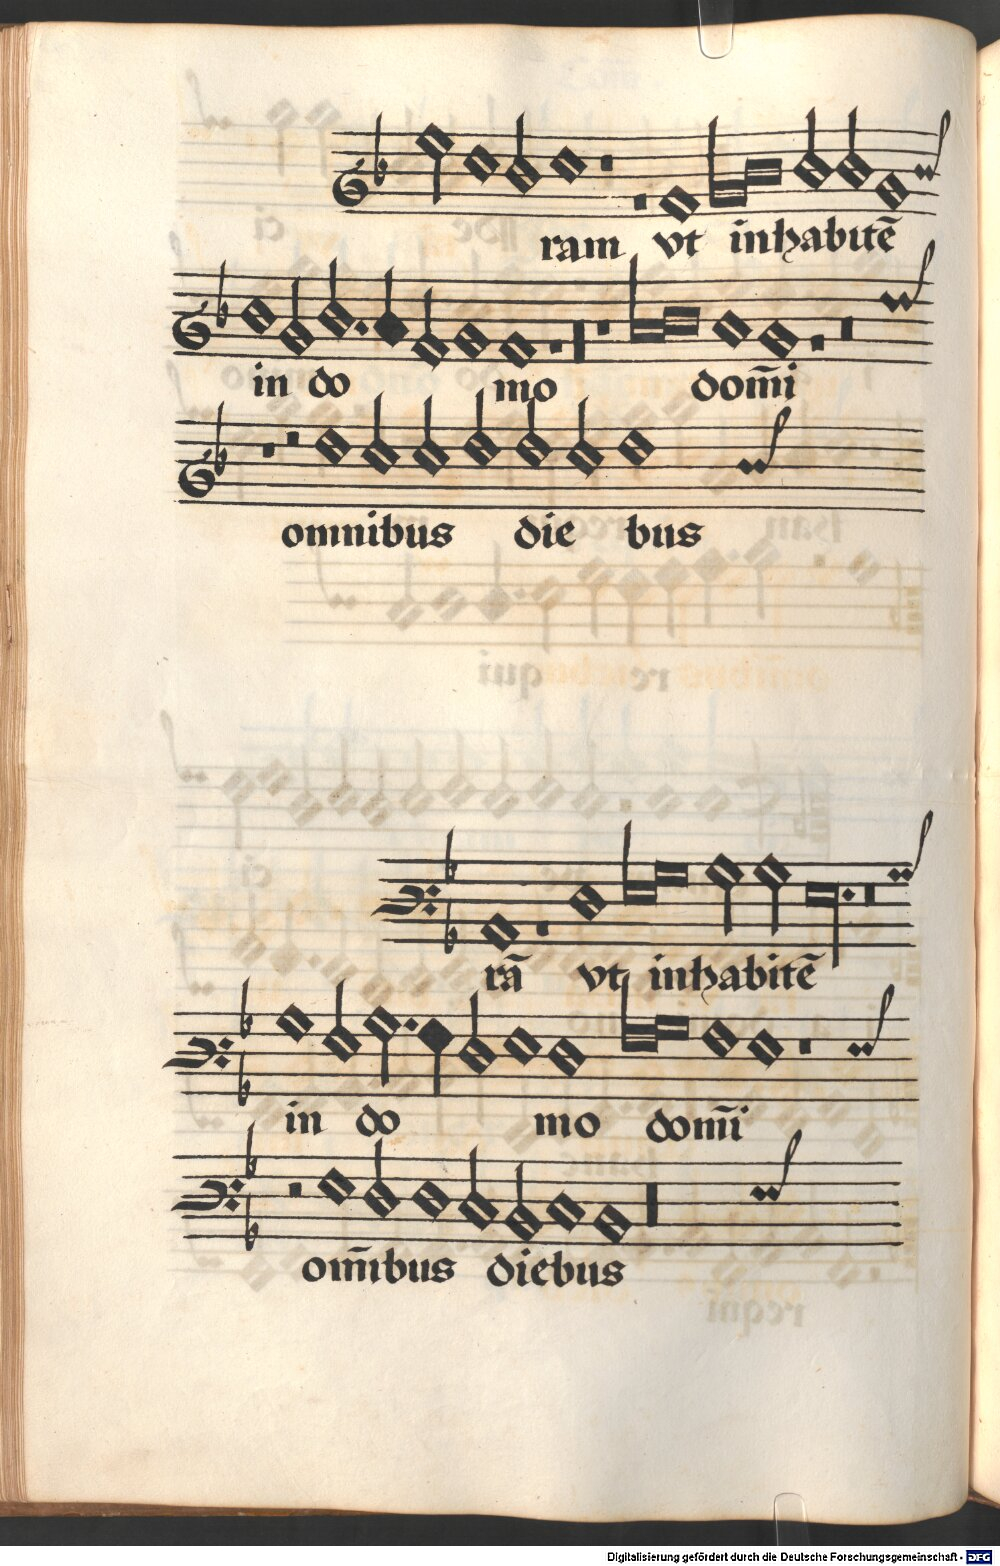 ram vt inhabitē
in do mo dom̄i
omnibus die bus
rā vt inhabitē
in do mo dom̄i
om̄ibus diebus
Digitalisierung gefördert durch die Deutsche Forschungsgemeinschaft - DFG